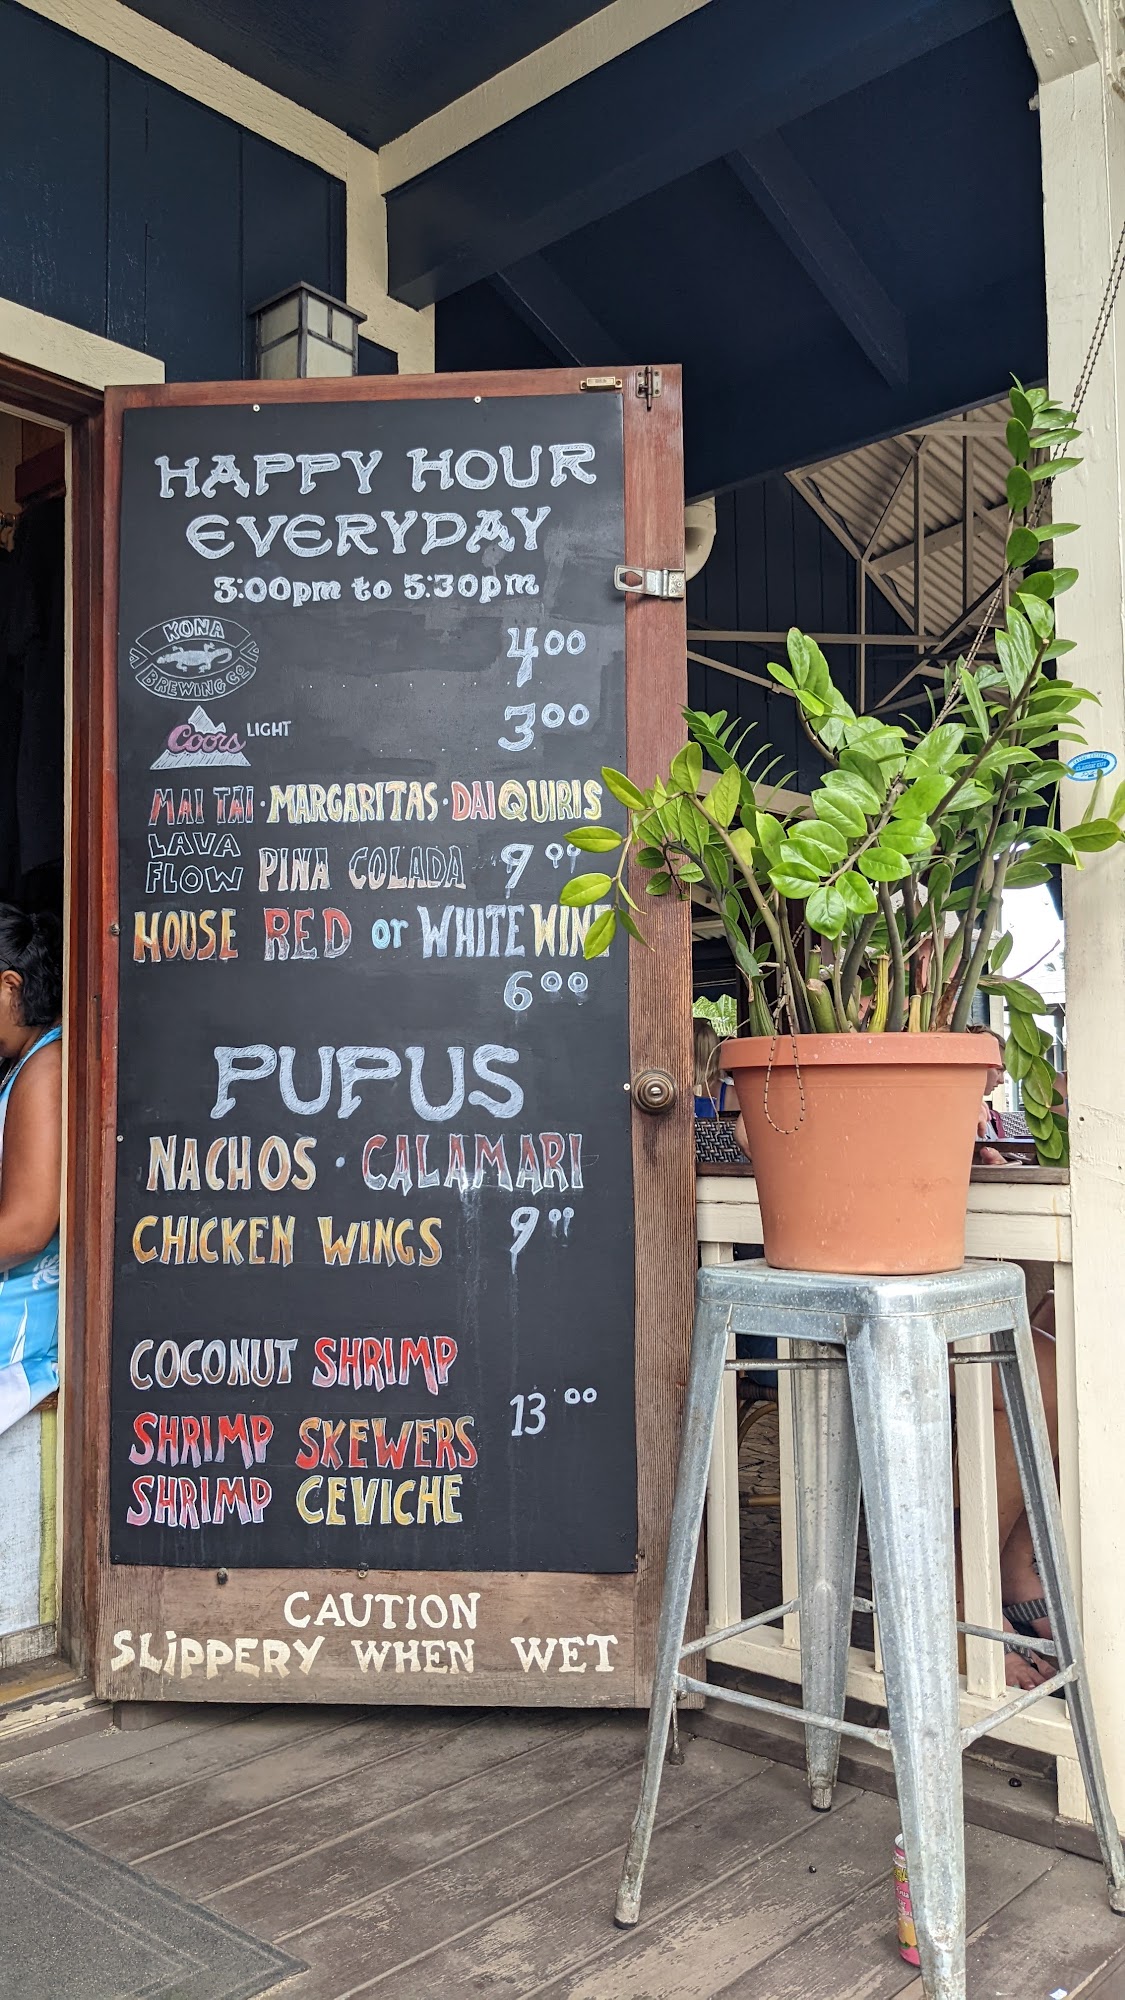 HAPPY HOUR
EVERYDAY
3:00pm to 5:30pm
KONA
BREWING CO
4⁰⁰
Coors LIGHT
3⁰⁰
MAI TAI · MARGARITAS · DAIQUIRIS
LAVA
FLOW PINA COLADA 9⁰⁰
HOUSE RED or WHITE WINE
6⁰⁰
PUPUS
NACHOS · CALAMARI
CHICKEN WINGS 9⁰⁰
COCONUT SHRIMP
13⁰⁰
SHRIMP SKEWERS
SHRIMP CEVICHE
CAUTION
SLiPPERY WHEN WET